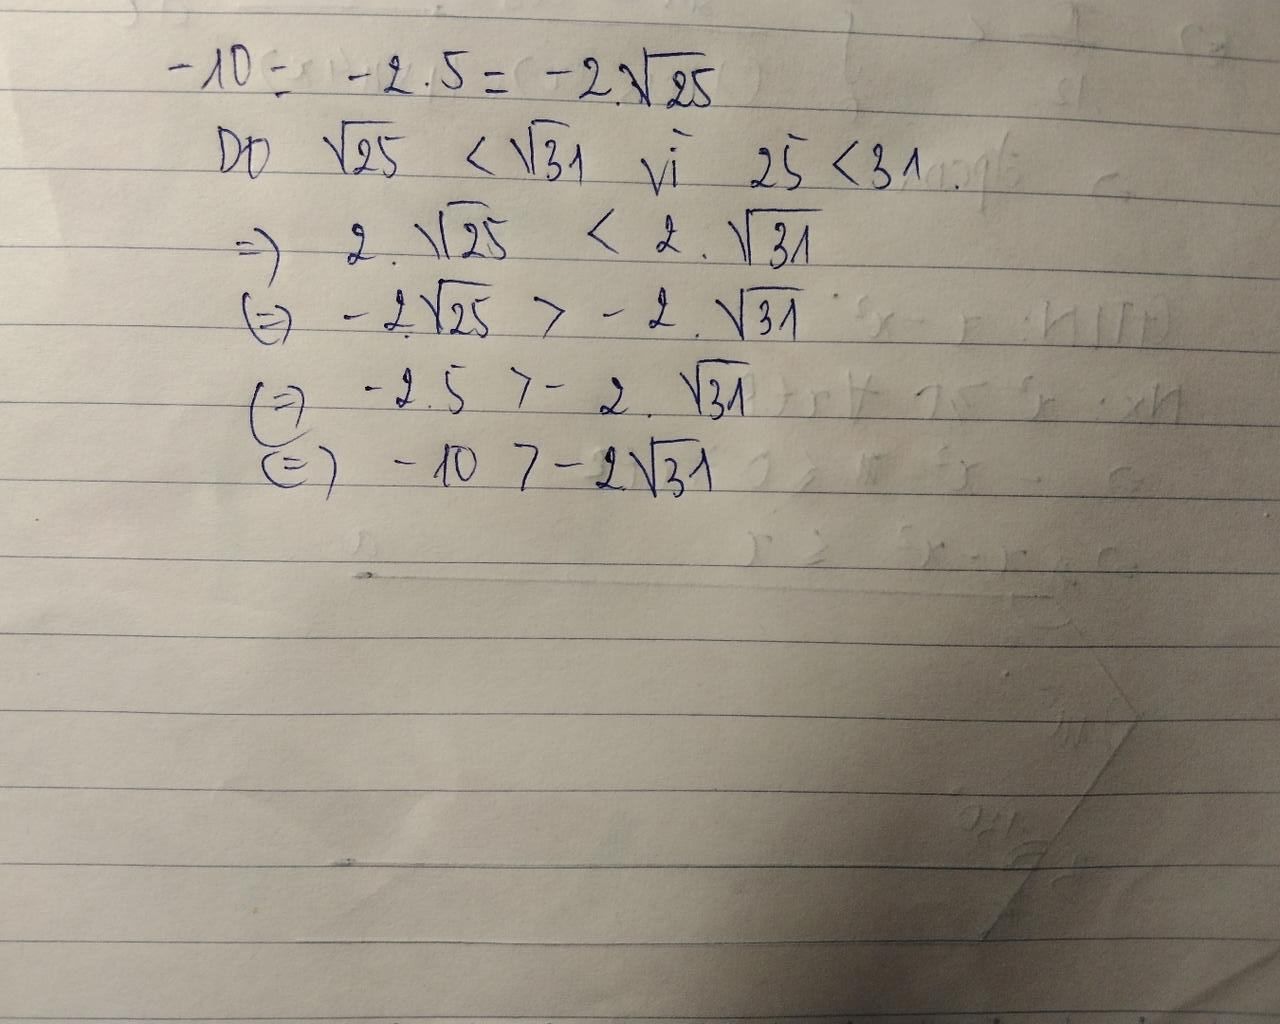 -10 = -2.5 = -2.√25
Do √25 < √31 vì 25 < 31.
=> 2.√25 < 2.√31
(=) -2.√25 > -2.√31
(=) -2.5 > -2.√31
(=) -10 > -2√31